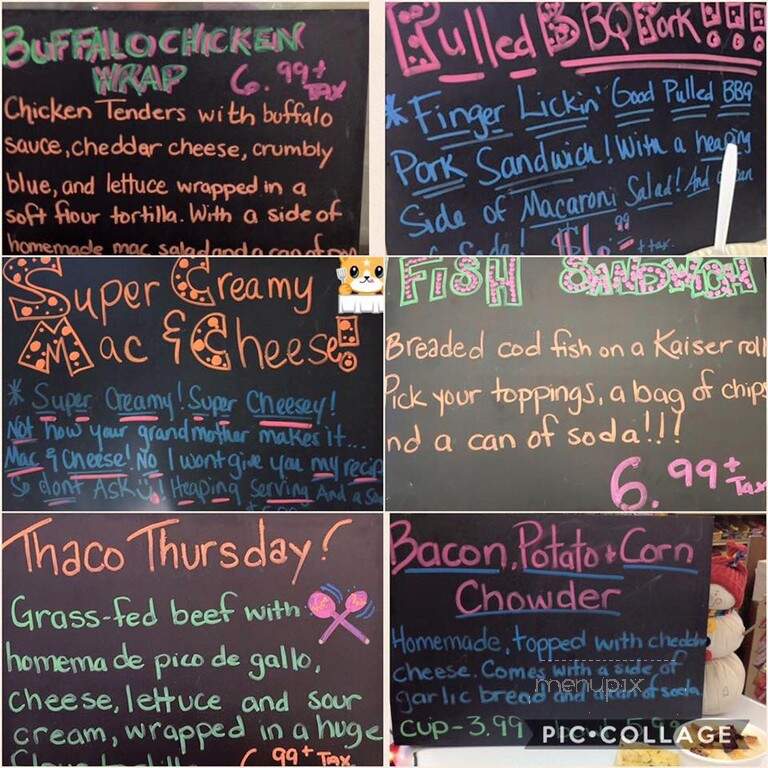 BUFFALO CHICKEN
WRAP 6.99 + TAX
Chicken Tenders with buffalo
sauce, cheddar cheese, crumbly
blue, and lettuce wrapped in a
soft flour tortilla. With a side of
homemade mac salad and a can of
Pulled BBQ Pork!!!
* Finger Lickin' Good Pulled BBQ
Pork Sandwich! With a heaping
Side of Macaroni Salad! And a can
of Soda! $6.99 + tax.
Super Creamy
Mac & Cheese!
* Super Creamy! Super Cheesey!
Not how your grandmother makes it...
Mac & Cheese! No I wont give you my recip
So dont Ask! Heaping Serving And a
FISH SANDWICH
Breaded cod fish on a Kaiser roll
Pick your toppings, a bag of chips
nd a can of soda!!!
6.99 + Tax
Thaco Thursday!
Grass-fed beef with
homemade pico de gallo,
cheese, lettuce and sour
cream, wrapped in a huge
6.99 + Tax
Bacon, Potato + Corn
Chowder
Homemade, topped with chedda
cheese. Comes with a side of
garlic bread and a can of soda
cup - 3.99
menupix
PIC•COLLAGE